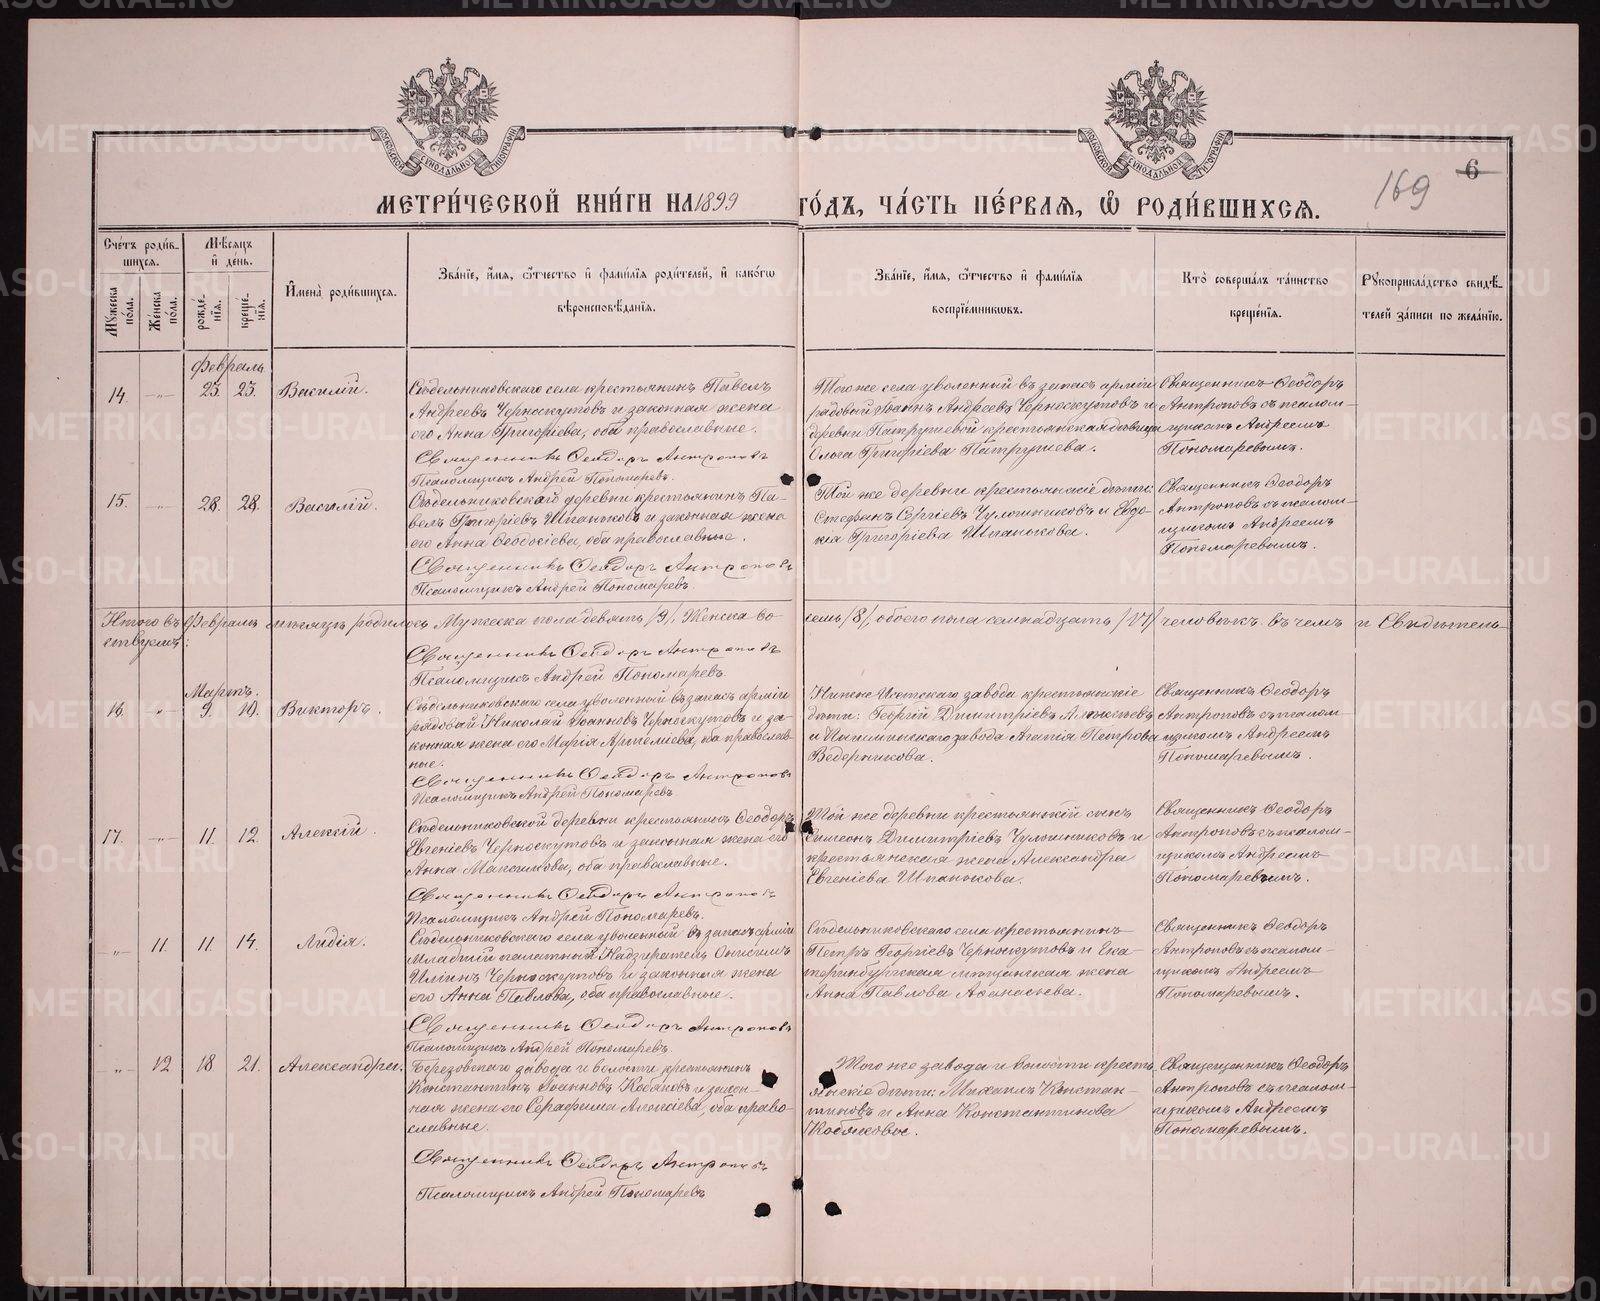 МЕТРИ́ЧЕСКОЙ КНИ́ГИ НА 1899 ГО́ДЪ, ЧА́СТЬ ПЕ́РВАЯ, Ѡ РОДИ́ВШИХСЯ.
169
6
Сче́тъ роди́вшихся.
Мꙋ́жеска по́ла.
Же́нска по́ла.
Мѣ́сяцъ и҆ день.
рожде́нїя.
креще́нїя.
И҆мена̀ роди́вшихся.
Зва́нїе, и҆́мя, ѻ҆́тчество и҆ фамилїя роди́телей, и҆ како́гѡ
вѣроисповѣ́данїя.
Зва́нїе, и҆́мя, ѻ҆́тчество и҆ фамилїя
воспрїе́мникѡвъ.
Кто̀ соверша́лъ та́инство
креще́нїя.
Рꙋкоприкла́дство свидѣ́-
телей за́писи по жела́нїю.
Февраль
14. 23. 23. Василій.
Сѣдельниковскаго села крестьянинъ Павелъ
Андреевъ Черноскутовъ и законная жена
его Анна Григоріева, оба православные.
Священникъ Ѳеодоръ Антроповъ
Псаломщикъ Андрей Пономаревъ.
Того же села уволенный въ запасъ арміи
рядовой Іоаннъ Андреевъ Черноскутовъ и
деревни Патрушевой крестьянская дѣвица
Ольга Григоріева Патрушева.
Священникъ Ѳеодоръ
Антроповъ съ псалом-
щикомъ Андреемъ
Пономаревымъ.
15. 28. 28. Василій.
Сѣдельниковской деревни крестьянинъ Па-
велъ Григоріевъ Шпаньковъ и законная жена
его Анна Ѳеодосіева, оба православные.
Священникъ Ѳеодоръ Антроповъ
Псаломщикъ Андрей Пономаревъ.
Той же деревни крестьянскіе дѣти:
Стефанъ Сергіевъ Чулошниковъ и Евдо-
кія Григоріева Шпанькова.
Священникъ Ѳеодоръ
Антроповъ съ псалом-
щикомъ Андреемъ
Пономаревымъ.
Итого въ Февралѣ мѣсяцѣ родилось Мужеска пола девять /9/, Женска во-
семь /8/, обоего пола семнадцать /17/ человѣкъ. въ чемъ и свидѣтель-
ствуемъ:
Священникъ Ѳеодоръ Антроповъ
Псаломщикъ Андрей Пономаревъ.
Мартъ.
16. 9. 10. Викторъ.
Сѣдельниковскаго села уволенный въ запасъ арміи
рядовой Николай Іоанновъ Черноскутовъ и за-
конная жена его Марія Артеміева, оба православ-
ные.
Священникъ Ѳеодоръ Антроповъ
Псаломщикъ Андрей Пономаревъ.
Нижне-Исетскаго завода крестьянскіе
дѣти: Георгій Димитріевъ Алексѣевъ
завода Агапія Петрова
Ведерникова.
Священникъ Ѳеодоръ
Антроповъ съ псалом-
щикомъ Андреемъ
Пономаревымъ.
17. 11. 12. Алексій.
Сѣдельниковской деревни крестьянинъ Ѳеодоръ
Евгеніевъ Черноскутовъ и законная жена его
Анна Максимова, оба православные.
Священникъ Ѳеодоръ Антроповъ
Псаломщикъ Андрей Пономаревъ.
Той же деревни крестьянскій сынъ
Симеонъ Димитріевъ Чулошниковъ и
крестьянская жена Александра
Евгеніева Шпанькова.
Священникъ Ѳеодоръ
Антроповъ съ псалом-
щикомъ Андреемъ
Пономаревымъ.
11. 11. 14. Лидія.
Сѣдельниковскаго села уволенный въ запасъ арміи
Младшій палатный Надзиратель Онисимъ
Иліинъ Черноскутовъ и законная жена
его Анна Павлова, оба православные.
Священникъ Ѳеодоръ Антроповъ
Псаломщикъ Андрей Пономаревъ.
Сѣдельниковскаго села крестьянинъ
Петръ Георгіевъ Черноскутовъ и Ека-
теринбургская мѣщанская жена
Анна Павлова Аѳанасьева.
Священникъ Ѳеодоръ
Антроповъ съ псалом-
щикомъ Андреемъ
Пономаревымъ.
12 18 21. Александра.
Березовскаго завода и волости крестьянинъ
Константинъ Іоанновъ Кобяковъ и закон-
ная жена его Серафима Алексіева, оба право-
славные.
Священникъ Ѳеодоръ Антроповъ
Псаломщикъ Андрей Пономаревъ
Того же завода и волости кресть-
янскіе дѣти: Михаилъ Констан-
тиновъ и Анна Константинова
Кобяковы.
Священникъ Ѳеодоръ
Антроповъ съ псалом-
щикомъ Андреемъ
Пономаревымъ.
METRIKI.GASO-URAL.RU